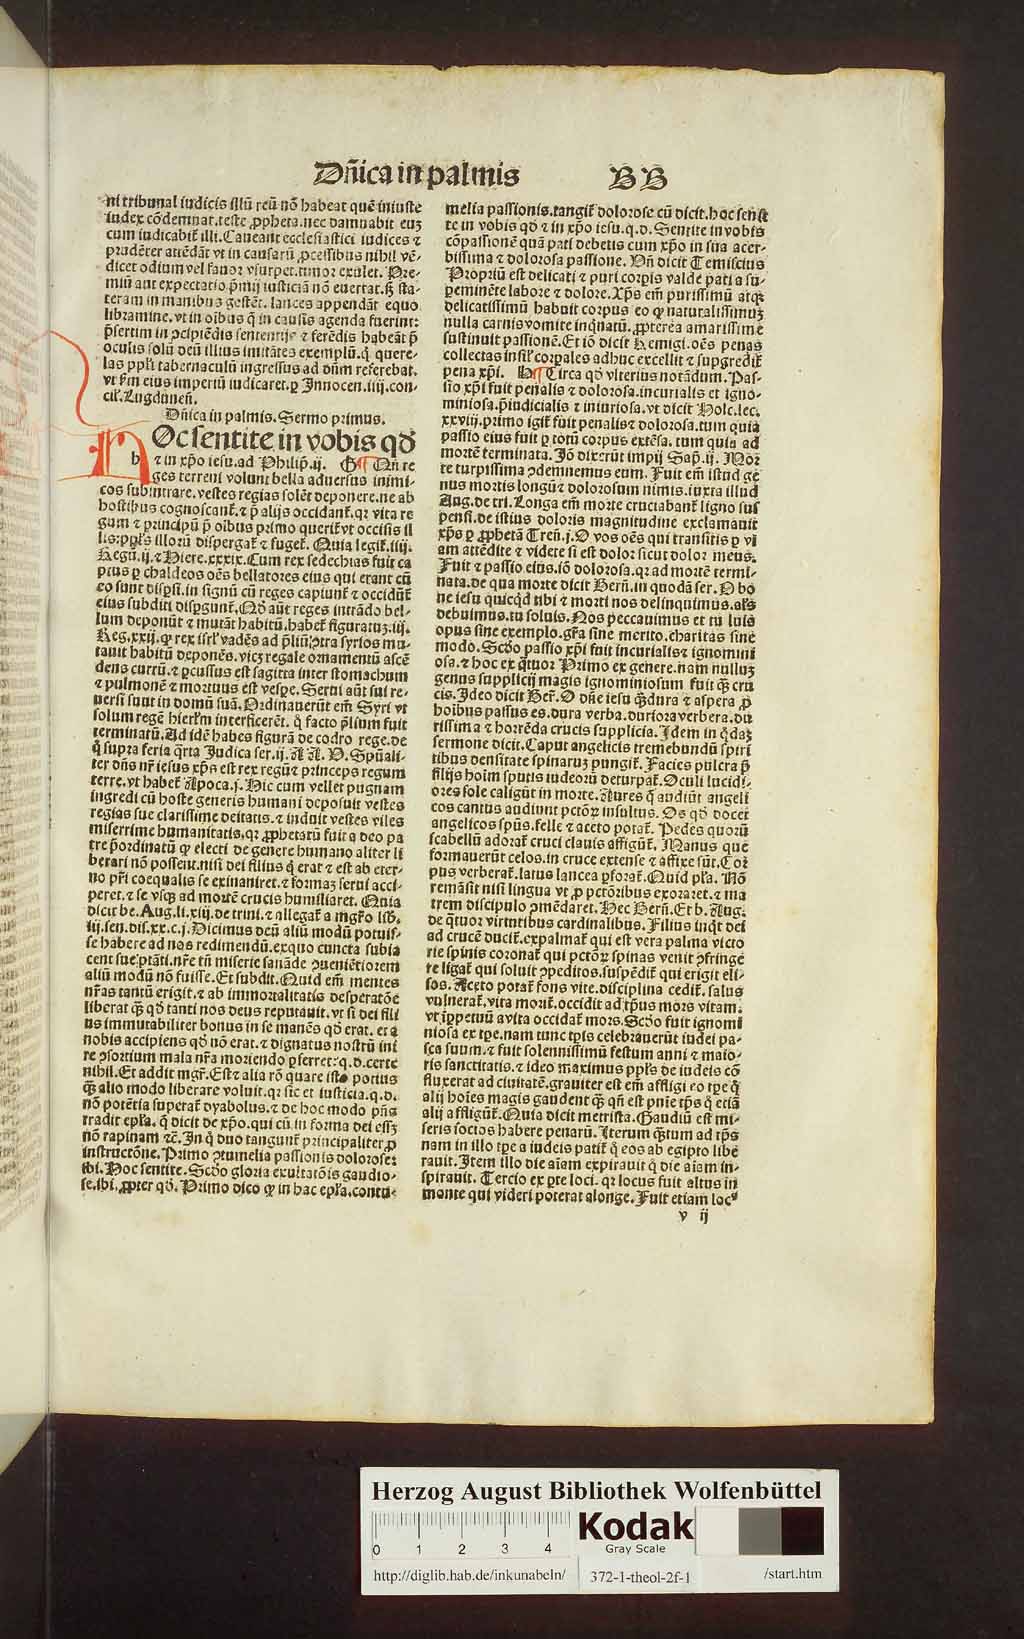 Dñica in palmis BB
ni tribunal iudicis illū reū nō habeat quē iniuste
iudex cōdemnat. teste ꝓpheta. nec damnabit euꝫ
cum iudicabit̃ illi. Caueant ecclesiastici iudices ⁊
prudēter attēdāt vt in causarū ꝓcessibus nihil vē-
dicet odium vel fauor vsurpet. timor exulet. Pre-
miū aut expectatio p̄mij iusticiā nō euertat. sꝫ sta-
teram in manibus gestēt. lances appendāt equo
libramine. vt in oībus q̄ in causis agenda fuerint:
p̄sertim in ꝯcipiēdis sententijs ⁊ ferēdis habeāt p̄
oculis solū deū illius imitātes exemplū. q̄ quere-
las ppłi tabernaculū ingressus ad dn̄m referebat.
vt ẜm eius imperiū iudicaret. ꝑ Innocen. iiij. con-
cil. Lugdunen̄.
Dñica in palmis. Sermo primus.
HOc sentite in vobis qď
h ⁊ in xp̄o iesu. ad Philip̄. ij. G Qn̄ re
ges terreni volunt bella aduersus inimi-
cos subintrare. vestes regias solēt deponere. ne ab
hostibus cognoscant̃ ⁊ p̄ alijs occidant̃. qꝛ vita re
gum ⁊ principū p̄ oibus primo querit̃ vt occisis il
lis: ppłs illorū dispergat̃ ⁊ fuget̃. Quia legit̃. iiij.
Regū. ij. ⁊ Hiere. xxxix. Cum rex sedechias fuit ca
ptus ꝑ chaldeos oēs bellatores eius qui erant cū
eo sunt disꝑsi. in signū cū reges capiunt̃ ⁊ occidūt̃
eius subditi disꝑgunt̃. Qď aūt reges intrādo bel-
lum deponūt ⁊ mutāt habitū. habet̃ figuratuꝫ. iij.
Reg. xxij. ꝙ rex isrł vadēs ad p̄liū ꝯtra syrios mu-
tauit habitū deponēs. vicꝫ regale ornamentū ascē
dens currū. ⁊ ꝑcussus est sagitta inter stomachum
⁊ pulmonē ⁊ mortuus est vespe. Serui aūt sui re-
uersi sunt in domū suā. Ordinauerūt em̄ Syri vt
solum regē hierłm interficerēt. q̄ facto p̄lium fuit
terminatū. Ad idē habes figurā de codro rege. de
q̄ supra feria q̄rta Judica ser. ij. A A. V. Spūali-
ter dn̄s nr̄ iesus xp̄s est rex regū ⁊ princeps regum
terre. vt habet̃ Apoca. j. Hic cum vellet pugnam
ingredi cū hoste generis humani deposuit vestes
regias sue clarissime deitatis. ⁊ induit vestes viles
miserrime humanitatis. qꝛ ꝓphetatū fuit a deo pa
tre p̄ordinatū ꝙ electi de genere humano aliter li
berari nō possent. nisi dei filius q̄ erat ⁊ est ab eter-
no pr̄i coequalis se exinaniret. ⁊ formaꝫ serui acci-
peret. ⁊ se vsqꝫ ad mortē crucis humiliaret. Quia
dicit be. Aug. li. xiij. de trini. ⁊ allegat̃ a mgr̄o lib.
iij. sen. dis. xx. c. j. Dicimus deū aliū modū potuis-
se habere ad nos redimendū. ex quo cuncta subia
cent sue ptāti. nr̄e tn̄ miserie sanāde ꝯueniētiorem
aliū modū nō fuisse. Et subdit. Quid em̄ mentes
nr̄as tantū erigit. ⁊ ab immortalitatis desperatōe
liberat qꝫ qď tanti nos deus reputauit. vt si dei fili
us immutabiliter bonus in se manēs qď erat. et a
nobis accipiens qď nō erat. ⁊ dignatus nostrū ini
re ꝯsortium mala nr̄a moriendo ꝑferret: q. d. certe
nihil. Et addit mgr̄. Est ⁊ alia rō quare isto potius
qꝫ alio modo liberare voluit. qꝛ sic et iusticia. q. d.
nō potētia superat̃ dyabolus. ⁊ de hoc modo pn̄s
tradit epła. q̄ dicit de xp̄o. qui cū in forma dei esset
nō rapinam ⁊c̄. In q̄ duo tangunt̃ principaliter ꝓ
instructōne. Primo ꝯtumelia passionis dolorose:
ibi. Hoc sentite. Scd̄o gloria exultatōis gaudio-
se. ibi. ꝓpter qď. Primo dico ꝙ in hac epła. contu-
melia passionis. tangit̃ dolorose cū dicit. hoc sensi
te in vobis qď ⁊ in xp̄o iesu. q. d. Sentite in vobis
cōpassionē quā pati debetis cum xp̄o in sua acer-
bissima ⁊ dolorosa passione. Vn̄ dicit Temiscius
Propriū est delicati ⁊ puri corpis valde pati a su-
ꝑeminēte labore ⁊ dolore. Xp̄s em̄ purissimū atqꝫ
delicatissimū habuit corpus eo ꝙ naturalissimuꝫ
nulla carnis vomite inq̄natū. ꝓpterea amarissime
sustinuit passionē. Et iō dicit Remigi. oēs penas
collectas insil̃ corpales adhuc excellit ⁊ supgredit̃
pena xp̄i. H Circa qď vlterius notādum. Pas-
sio xp̄i fuit penalis ⁊ dolorosa. incurialis et igno-
miniosa. p̄iudicialis ⁊ iniuriosa. vt dicit Holc. lec.
xxviij. primo igit̃ fuit penalis ⁊ dolorosa. tum quia
passio eius fuit ꝑ totū corpus extēsa. tum quia ad
mortē terminata. Iō dixerūt impij Sap̄. ij. Mor
te turpissima ꝯdemnemus eum. Fuit em̄ istud ge
nus mortis longū ⁊ dolorosum nimis. iuxta illud
Aug. de tri. Longa em̄ morte cruciabant̃ ligno sus
pensi. de istius doloris magnitudine exclamauit
xp̄s ꝑ ꝓphetā Tren̄. j. O vos oēs qui transitis ꝑ vi
am attēdite ⁊ videte si est dolor sicut dolor meus.
Fuit ⁊ passio eius. iō dolorosa. qꝛ ad mortē termi-
nata. de qua morte dicit Bern̄. in quodā ser. O bo
ne iesu quicq̄d tibi ⁊ morti nos delinquimus. al̄s
debuimus. tu soluis. Nos peccauimus et tu luis
opus sine exemplo. gr̄a sine merito. charitas sine
modo. Scd̄o passio xp̄i fuit incurialis ⁊ ignomini
osa. ⁊ hoc ex q̄tuor Primo ex genere. nam nulluꝫ
genus supplicij magis ignominiosum fuit qꝫ cru
cis. Ideo dicit Ber̄. O dn̄e iesu qꝫ dura ⁊ aspera ꝓ
hoibus passus es. dura verba. duriora verbera. du
rissima ⁊ horrēda crucis supplicia. Idem in q̄daꝫ
sermone dicit. Caput angelicis tremebundū spiri
tibus densitate spinaruꝫ pungit̃. Facies pulcra p̄
filijs hoīm sputis iudeorū deturpat̃. Oculi lucidi-
ores sole caligūt in morte. Aures q̄ audiūt angeli
cos cantus audiunt pctōꝝ insultus. Os qď docet
angelicos spūs. felle ⁊ aceto potat̃. Pedes quorū
scabellū adorat̃ cruci clauis affigūt̃. Manus que
formauerūt celos. in cruce extense ⁊ affixe sūt. Cor
pus verberat̃. latus lancea ꝑforat̃. Quid pła. Nō
remāsit nisi lingua vt ꝓ pctōribus exoraret. ⁊ ma
trem discipulo ꝯmēdaret. Hec Bern̄. Et b. Aug.
de q̄tuor virtutibus cardinalibus. Filius inqt dei
ad crucē ducit̃. expalmat̃ qui est vera palma victo
rie spinis coronat̃ qui pctōꝝ spinas venit ꝯfringe
re ligat̃ qui soluit ꝯpeditos. suspēdit̃ qui erigit eli-
sos. Aceto potat̃ fons vite. disciplina cedit̃. salus
vulnerat̃. vita morit̃. occidit ad tp̄us mors vitam.
vt ip̄petuū a vita occidat̃ mors. Scd̄o fuit ignomi
niosa ex tpe. nam tunc tpis celebrauerūt iudei pa-
sca suum. ⁊ fuit solennissimū festum anni ⁊ maio-
ris sanctitatis. ⁊ ideo maximus ppłs de iudeis cō
fluxerat ad ciuitatē. grauiter est em̄ affligi eo tpe q̄
alij hoīes magis gaudent qꝫ qn̄ est pn̄ie tp̄s q̄ etiā
alij affligūt̃. Quia dicit metrista. Gaudiū est mi-
seris socios habere penarū. Iterum qꝫtum ad tp̄s
nam in illo tpe a iudeis patit̃ q̄ eos ab egipto libe
rauit. Item illo die aīam expirauit q̄ die aīam in-
spirauit. Tercio ex ꝑte loci. qꝛ locus fuit altus in
monte qui videri poterat a longe. Fuit etiam locꝰ
v ij
Herzog August Bibliothek Wolfenbüttel
0 1 2 3 4
Kodak
Gray Scale
http://diglib.hab.de/inkunabeln/ 372-1-theol-2f-1 /start.htm